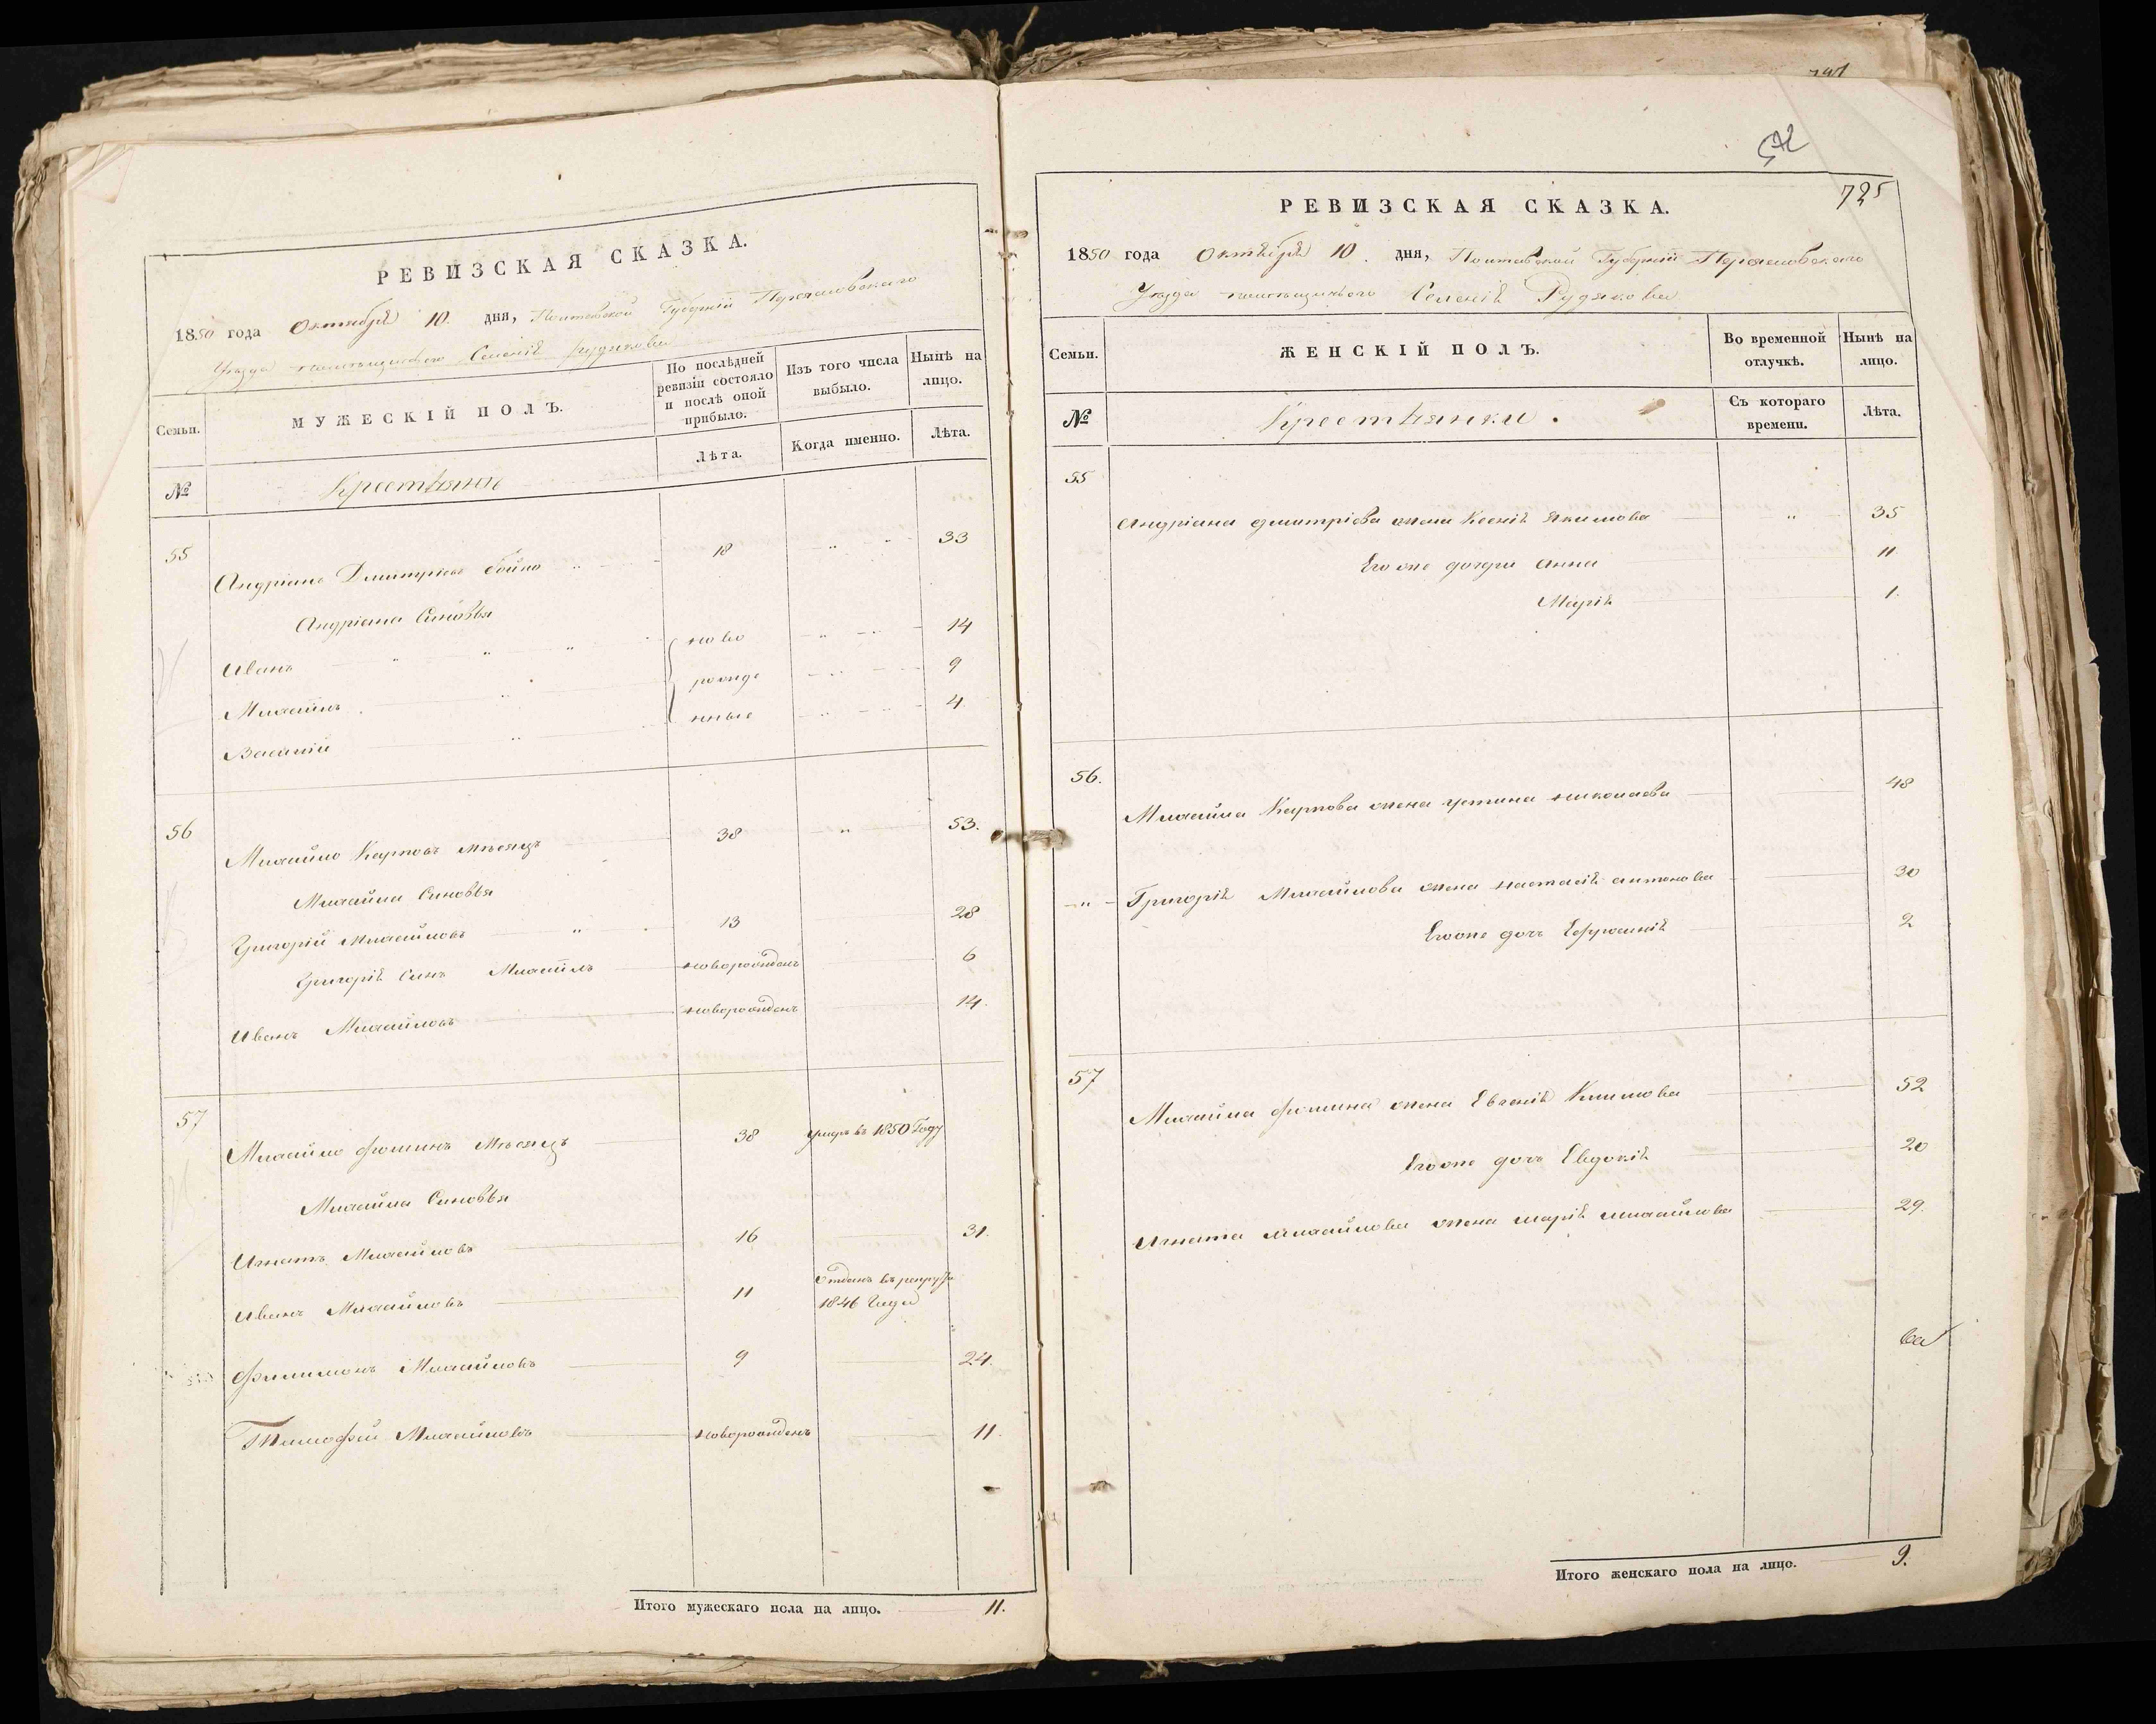 РЕВИЗСКАЯ СКАЗКА.
1850 года Октября 10. дня, Полтавской Губерніи Переяславскаго
Уезда помещичьего Селенія Рудяковъ
Семьи.
МУЖЕСКІЙ ПОЛЪ.
По послѣдней ревизіи состояло и послѣ оной прибыло.
Изъ того числа выбыло.
Нынѣ на лицо.
№
Крестьяне
Лѣта.
Когда именно.
Лѣта.
55
Андріянъ Дмитріевъ Бойко 18 33
Андріана Сыновья
Иванъ ново 14
Михайлъ рожде 9
Василій нные 4
56
Михайло Карповъ Мѣсяцъ 38 53.
Михайла Сыновья
Григорій Михайловъ 13 28
Григорія Сынъ Михаилъ новорожденъ 6
Иванъ Михайловъ новорожденъ 14.
57
Михайло Фоминъ Мѣсяцъ 38 умеръ въ 1850 Году
Михайла Сыновья
Игнатъ Михайловъ 16 31.
Иванъ Михайловъ 11 Отданъ въ рекруты 1846 Года
Филимонъ Михайловъ 9 24.
Тимофей Михайловъ новорожденъ 11.
Итого мужескаго пола на лицо. 11.
725
РЕВИЗСКАЯ СКАЗКА.
1850 года Октября 10. дня, Полтавской Губерніи Переяславскаго
Уезда помещичьего Селенія Рудякова
Семьи.
ЖЕНСКІЙ ПОЛЪ.
Во временной отлучкѣ.
Нынѣ на лицо.
№
Крестьянки.
Съ котораго времени.
Лѣта.
55
Андріана Дмитріева жена Ксенія Якимова 35
Его же дочери Анна 11
Марія 1.
56.
Михайла Карпова жена Устина Николаева 48
Григорія Михайлова жена Настасія Антонова 30
Его же дочь Ефросинія 2
57
Михайла Фомина жена Евгенія Климова 52
Его же дочь Евдокія 20
Игната Михайлова жена Марія Михайлова 29.
Итого женскаго пола на лицо. 9.